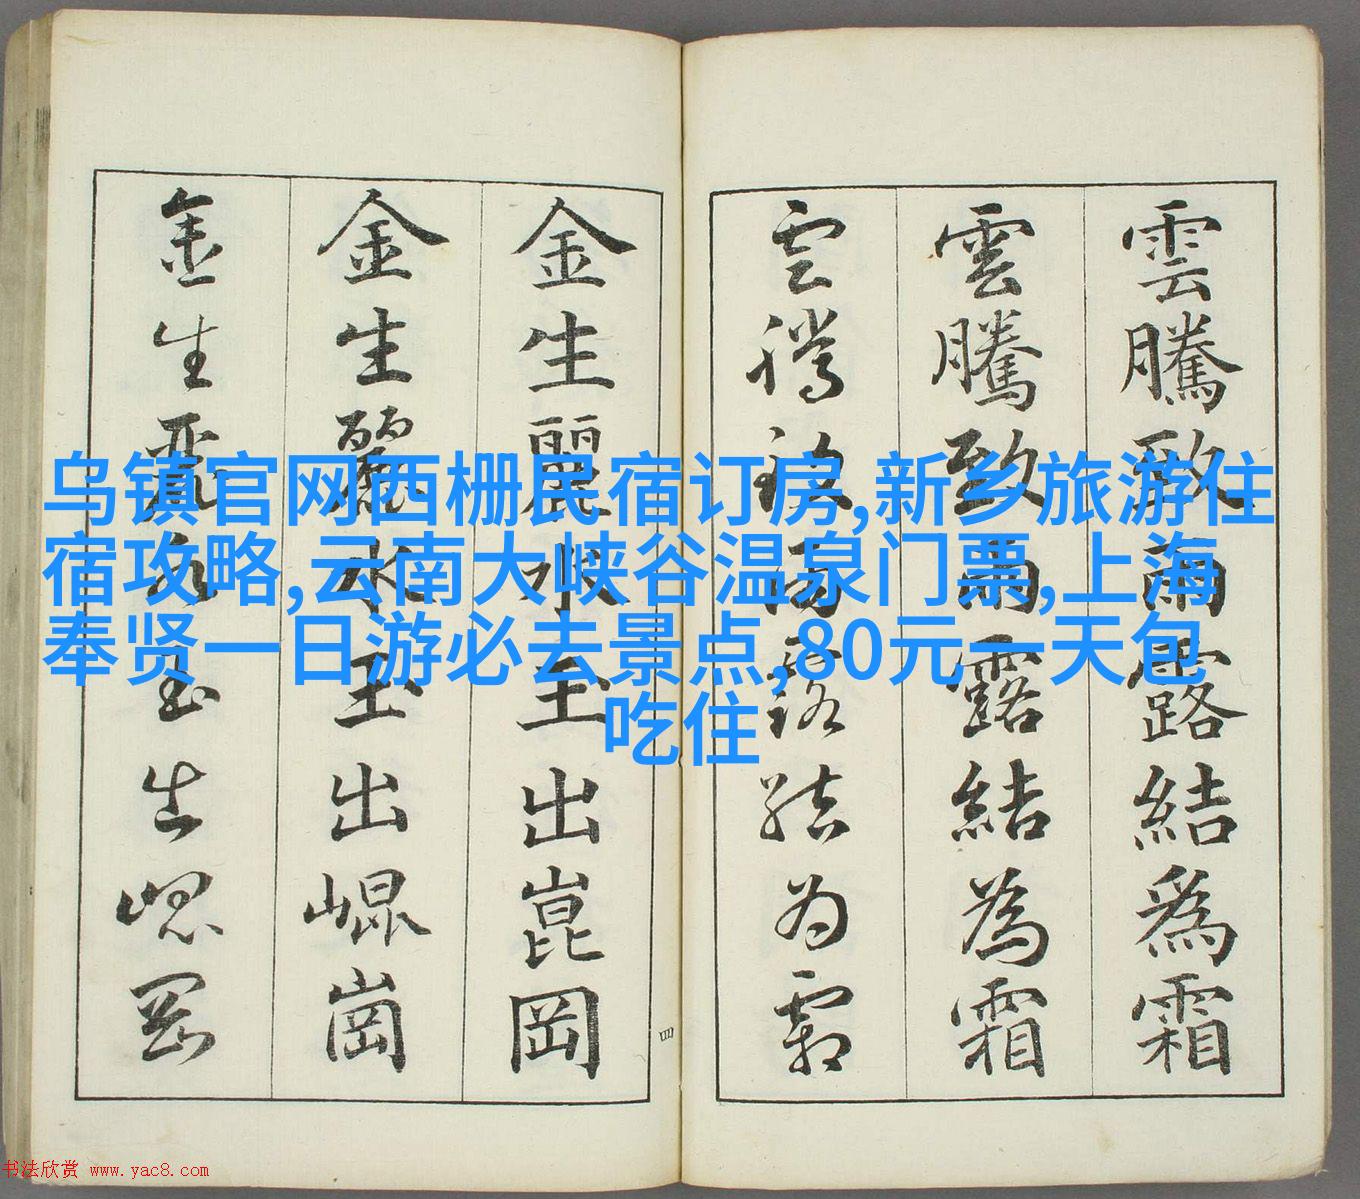 雲騰致雨露結爲霜
雲騰致雨露結為霜
雲騰致雨露結为霜
金生麗水玉出崑岡
金生麗水玉出崐崗
金生麗水玉出崐岡
四
乌镇官网西栅民宿订房,新乡旅游住
宿攻略,云南大峡谷温泉门票,上海
奉贤一日游必去景点,80元一天包
吃住
书法欣赏 www.yac8.com